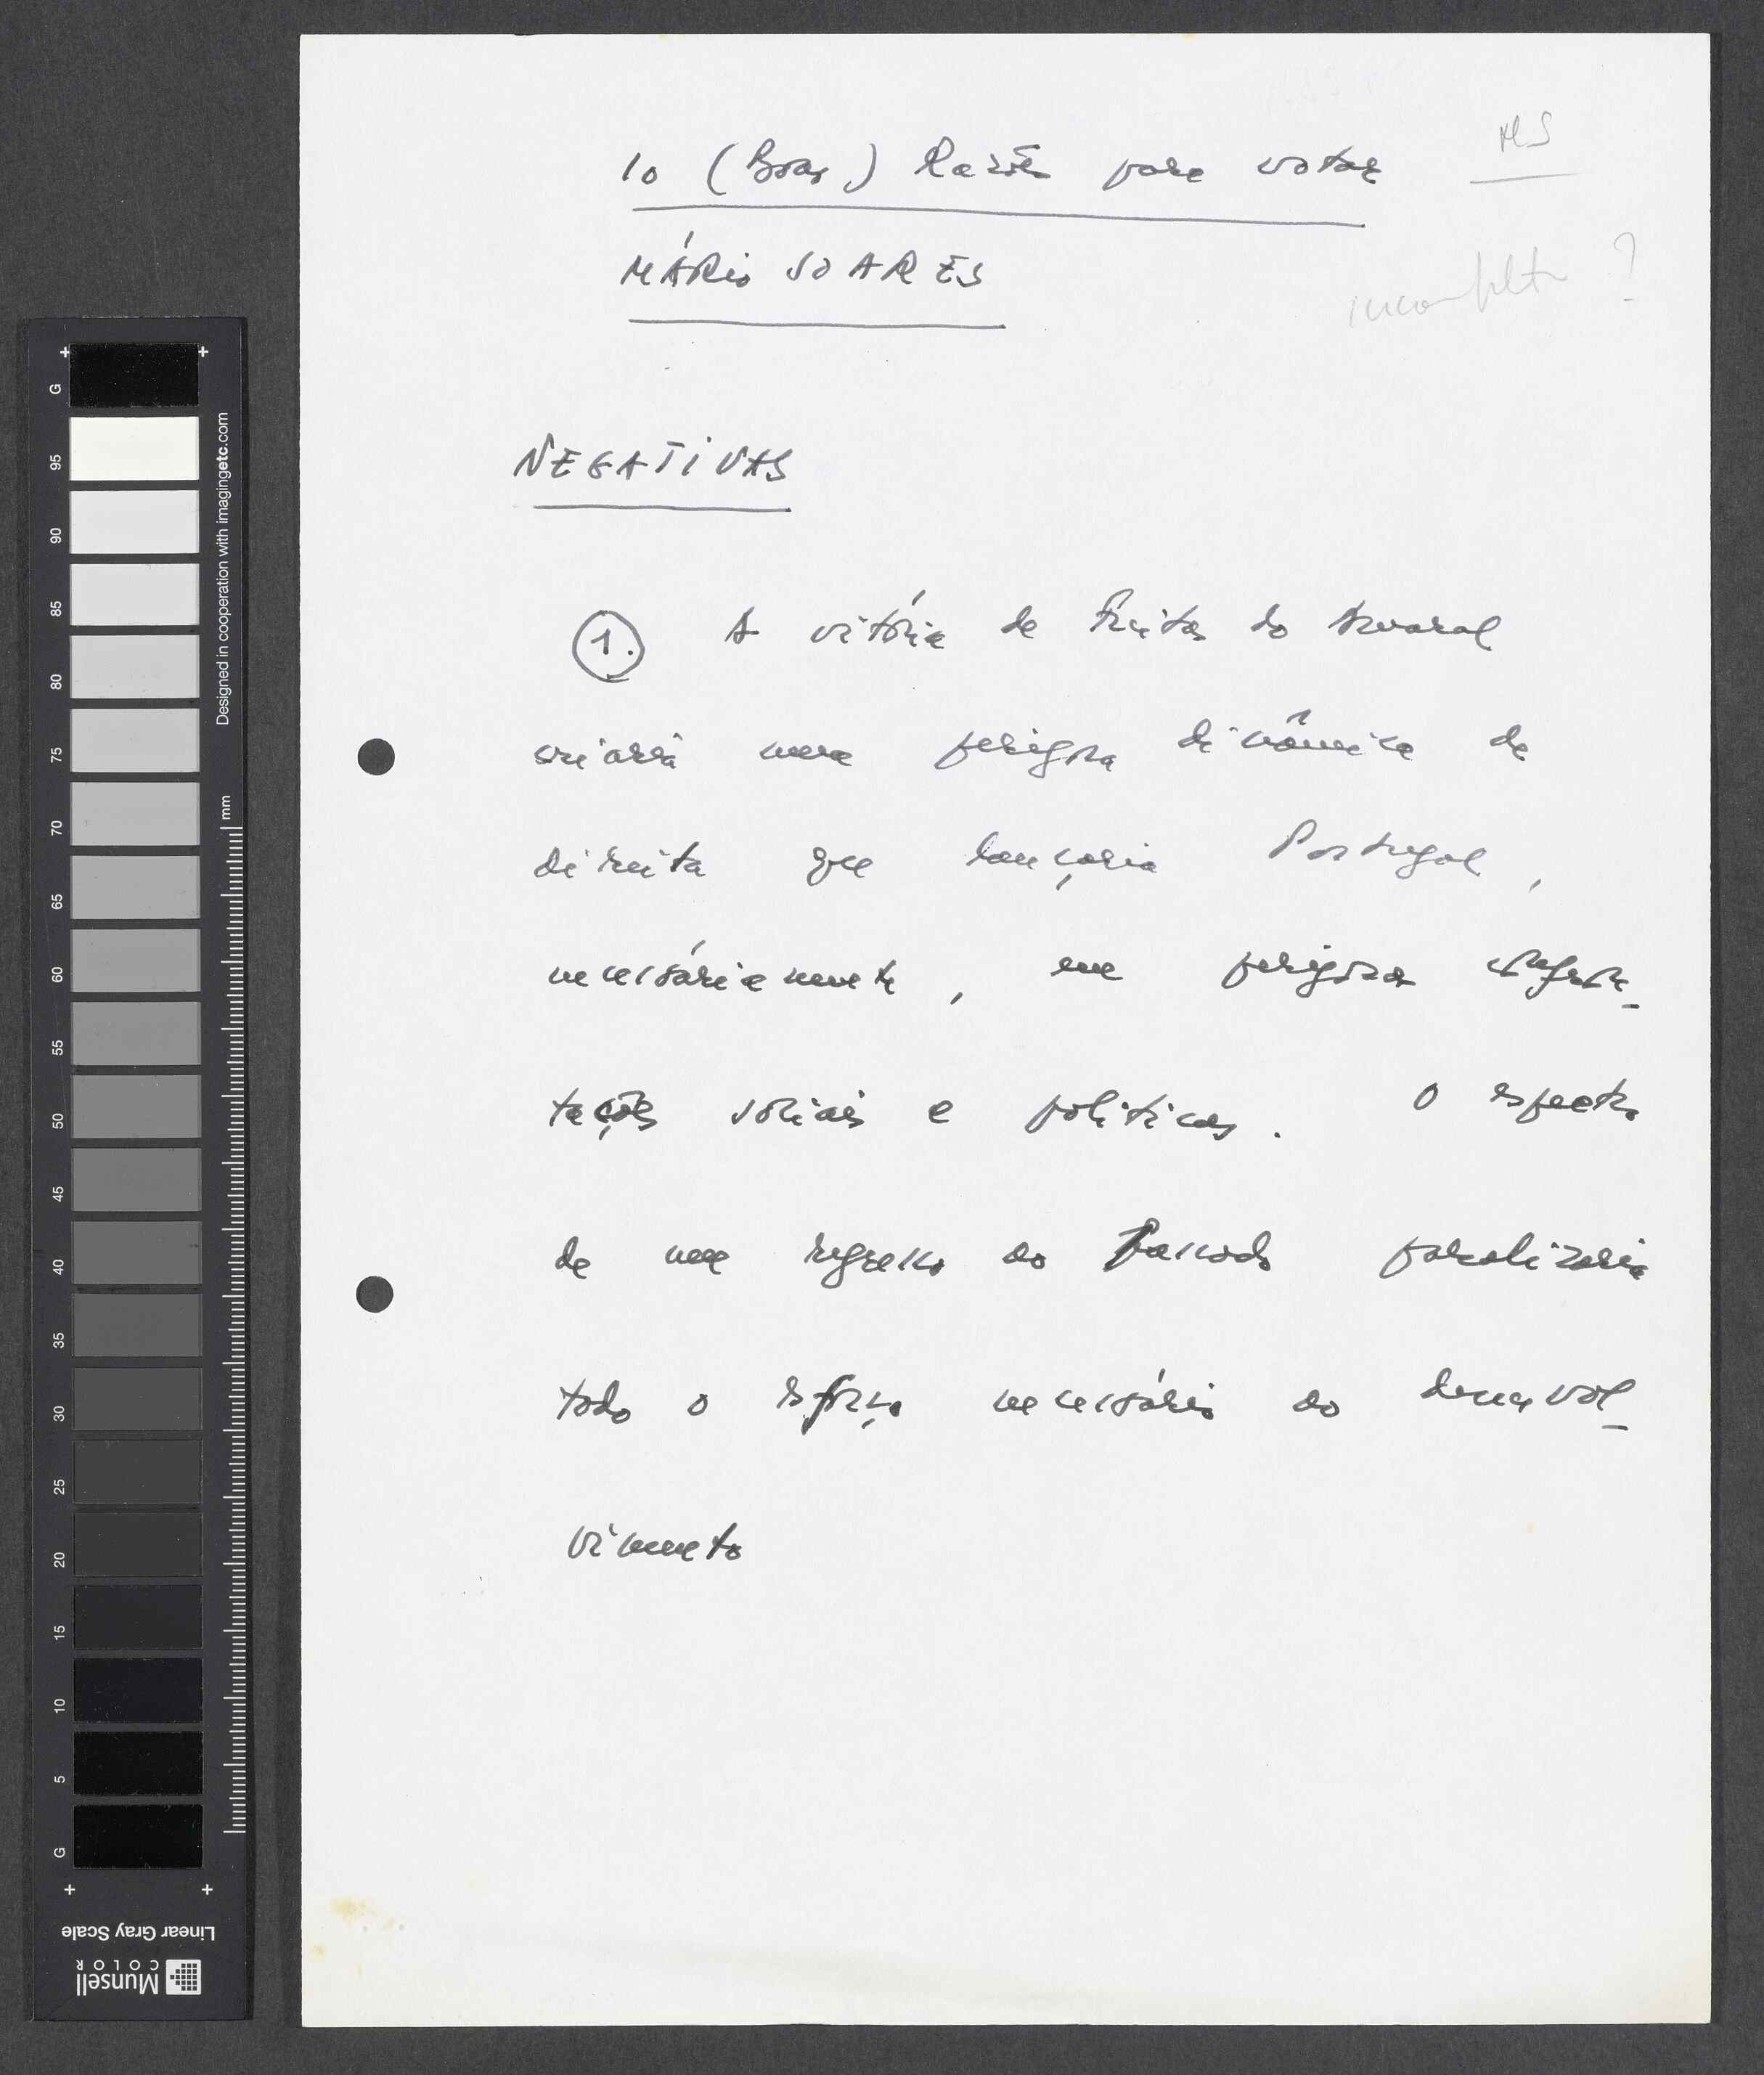 10 (Boas) Razões para votar
MS
MÁRIO SOARES
incompleto ?
NEGATIVAS
1. A vitória de Freitas do Amaral
criará uma perigosa dinâmica de
direita que lançaria Portugal,
necessáriamente, em perigosas
tações sociais e políticas. O espectro
de um regresso ao passado paralizaria
todo o esforço necessário ao desenvol-
vimento
G
95
90
85
80
75
70
65
60
55
50
45
40
35
30
25
20
15
10
5
G
Designed in cooperation with imagingetc.com
mm
Linear Gray Scale
Munsell
COLOR